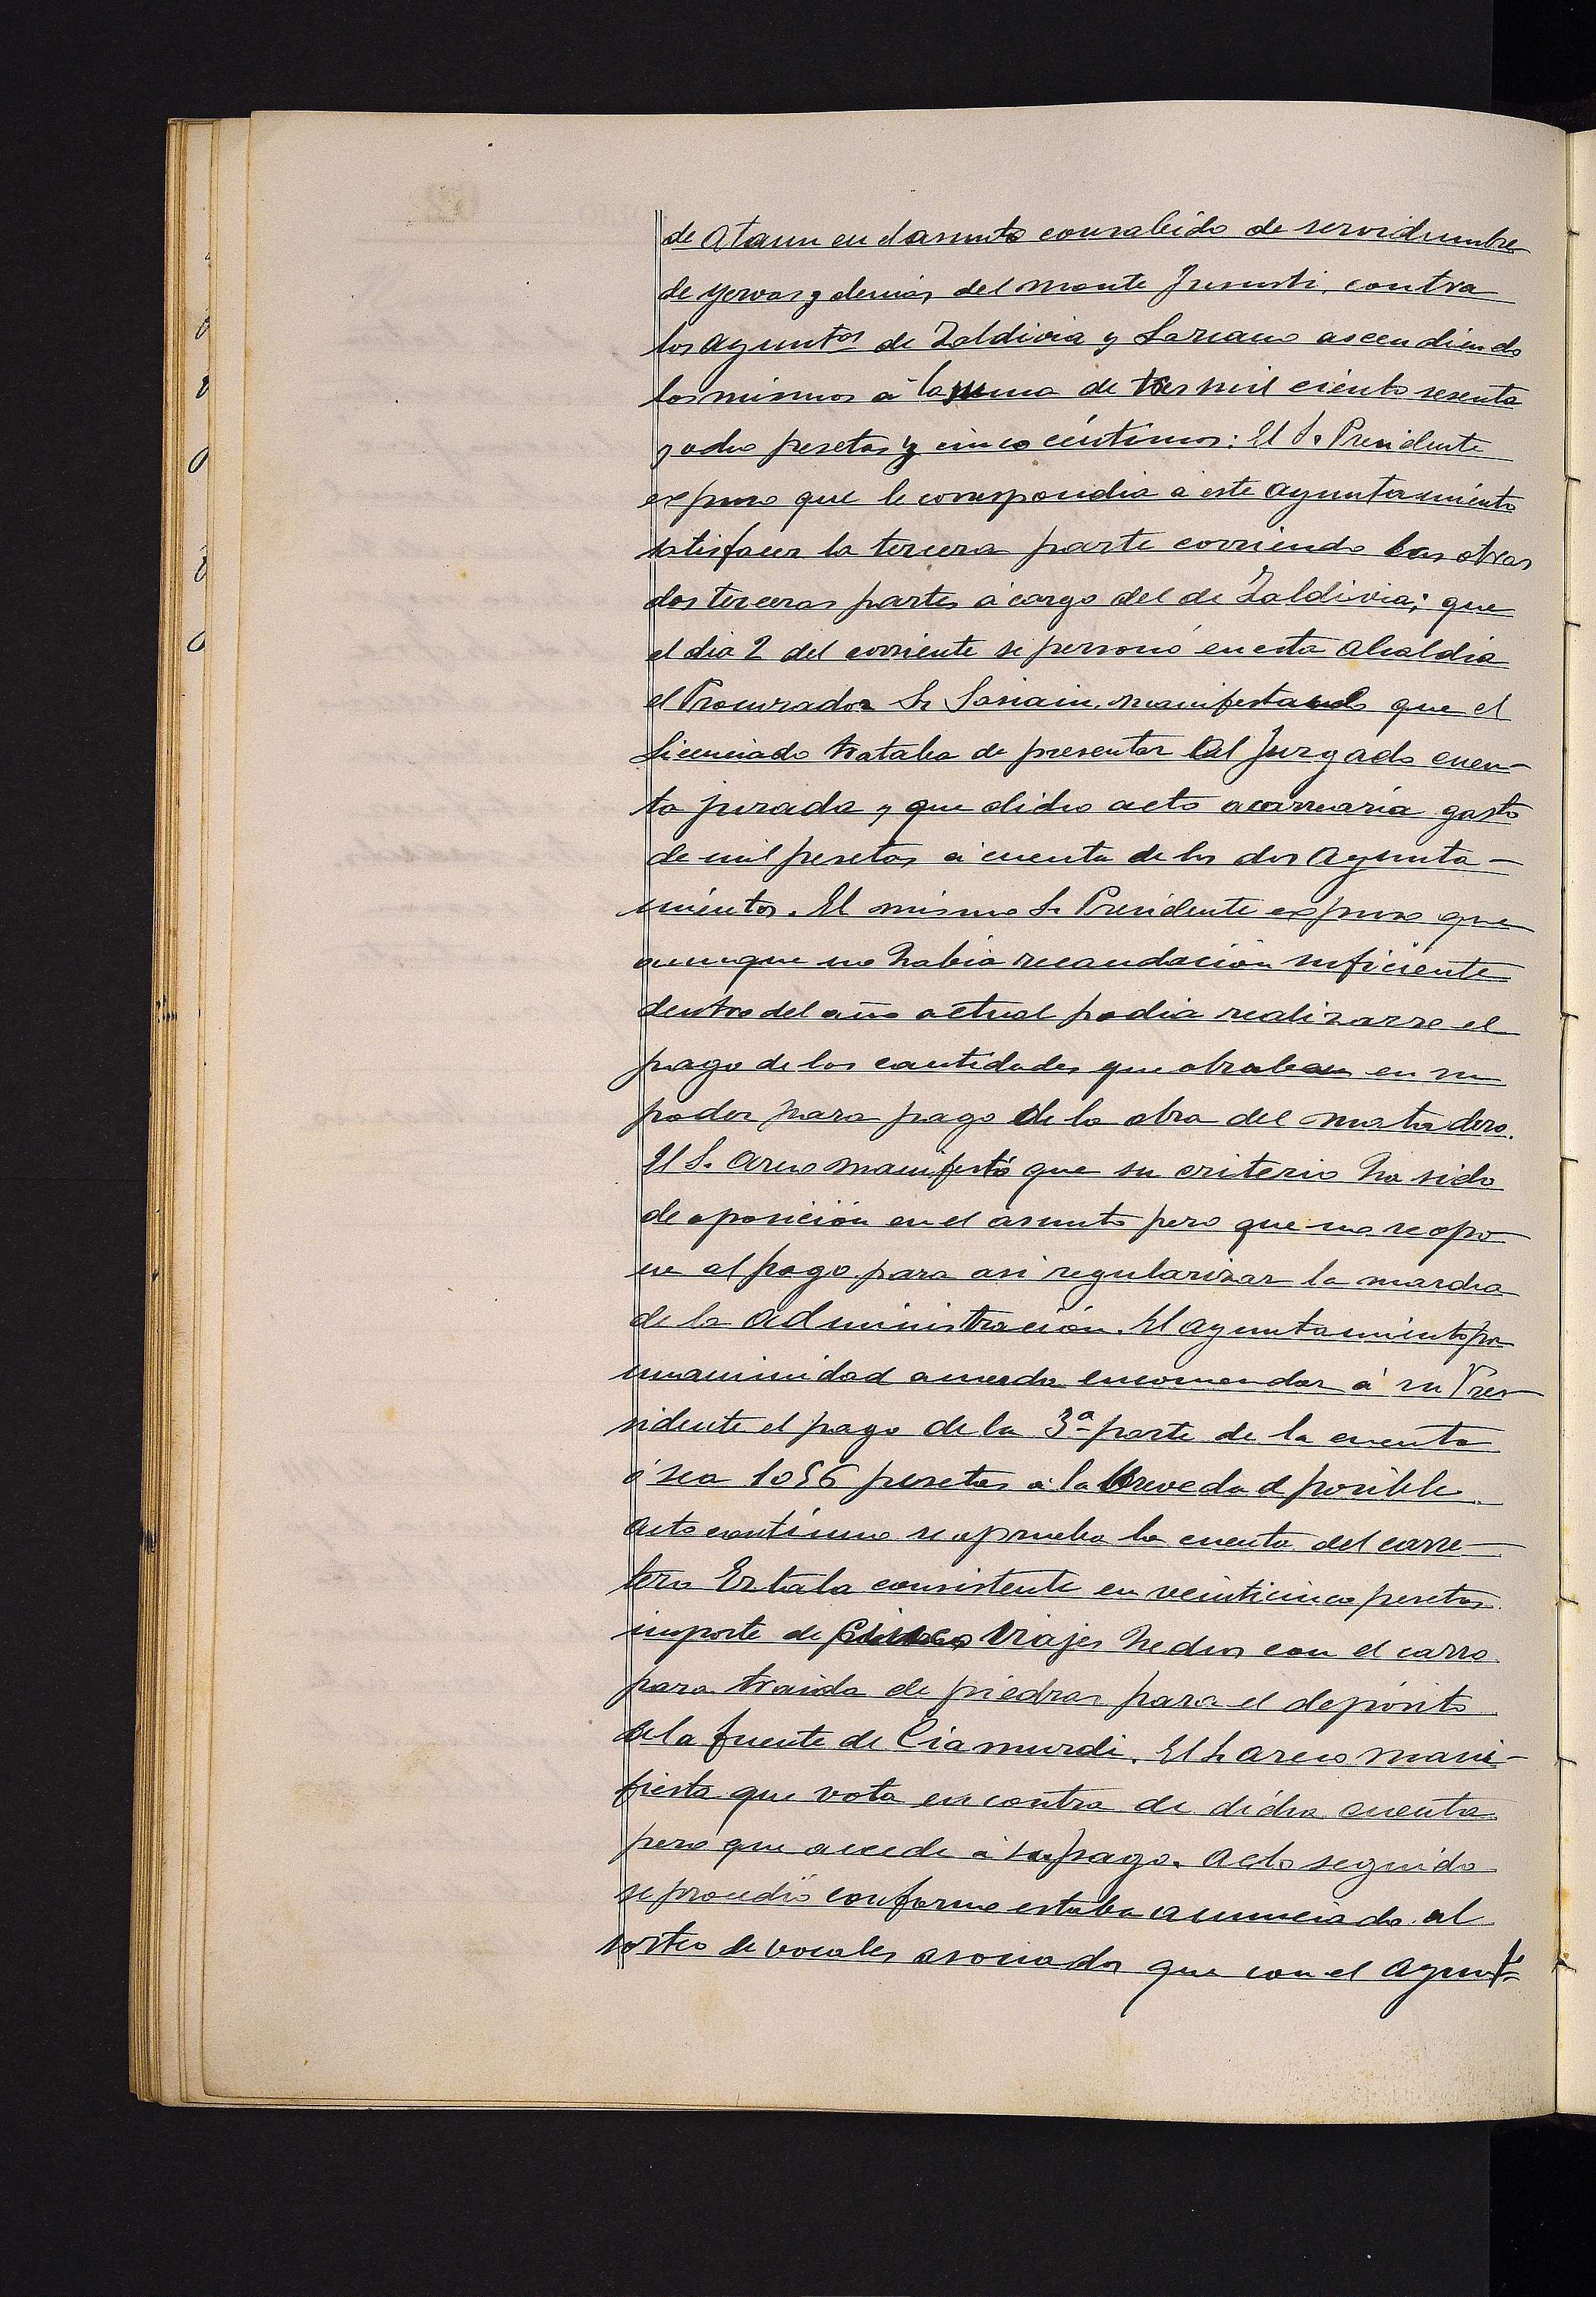 de Ataun en el asunto consabido de servidumbre
de yervas y demás del monte Jrumsti, contra
los Ayuntos de Zaldivia y Lazcano ascendiendo
los mismos á la suma de tres mil ciento sesenta
y ocho pesetas y cinco céntimos: El Sr Presidente
expuso que le correspondia á este Ayuntamiento
satisfacer la tercera parte corriendo las otras
dos terceras partes á cargo del de Zaldivia; que
el dia 2 del corriente se personó en esta Alcaldia
el Procurador Sr Soriain manifestando que el
Licenciado trataba de presentar al Juzgado cuen-
ta jurada y que dicho acto acarrearia gasto
de mil pesetas á cuenta de los dos Ayunta-
mientos. El mismo Sr Presidente expuso que
aunque no habia recaudación suficiente
dentro del año actual podia realizarse el
pago de las cantidades que obraban en su
poder para pago de la obra del matadero.
El Sr Arcos manifestó que su criterio ha sido
de oposición en el asunto pero que no se opo
ne al pago para asi regularizar la marcha
de la Administración. El Ayuntamiento por
unanimidad acuerda encomendar á su Pre-
sidente el pago de la 3ª parte de la cuenta
ó sea 1056 pesetas á la brevedad posible.
Acto continuo se aprueba la cuenta del carre-
tero Ertala consistente en veinticinco pesetas
importe de cinco viajes hechos con el carro
para traida de piedras para el depósito
de la fuente de Ciamurdi. El Sr Arcos mani-
fiesta que vota en contra de dicha cuenta
pero que accede á su pago. Acto seguido
se procedió conforme estaba anunciado al
sorteo de vocales asociados que con el Ayunto